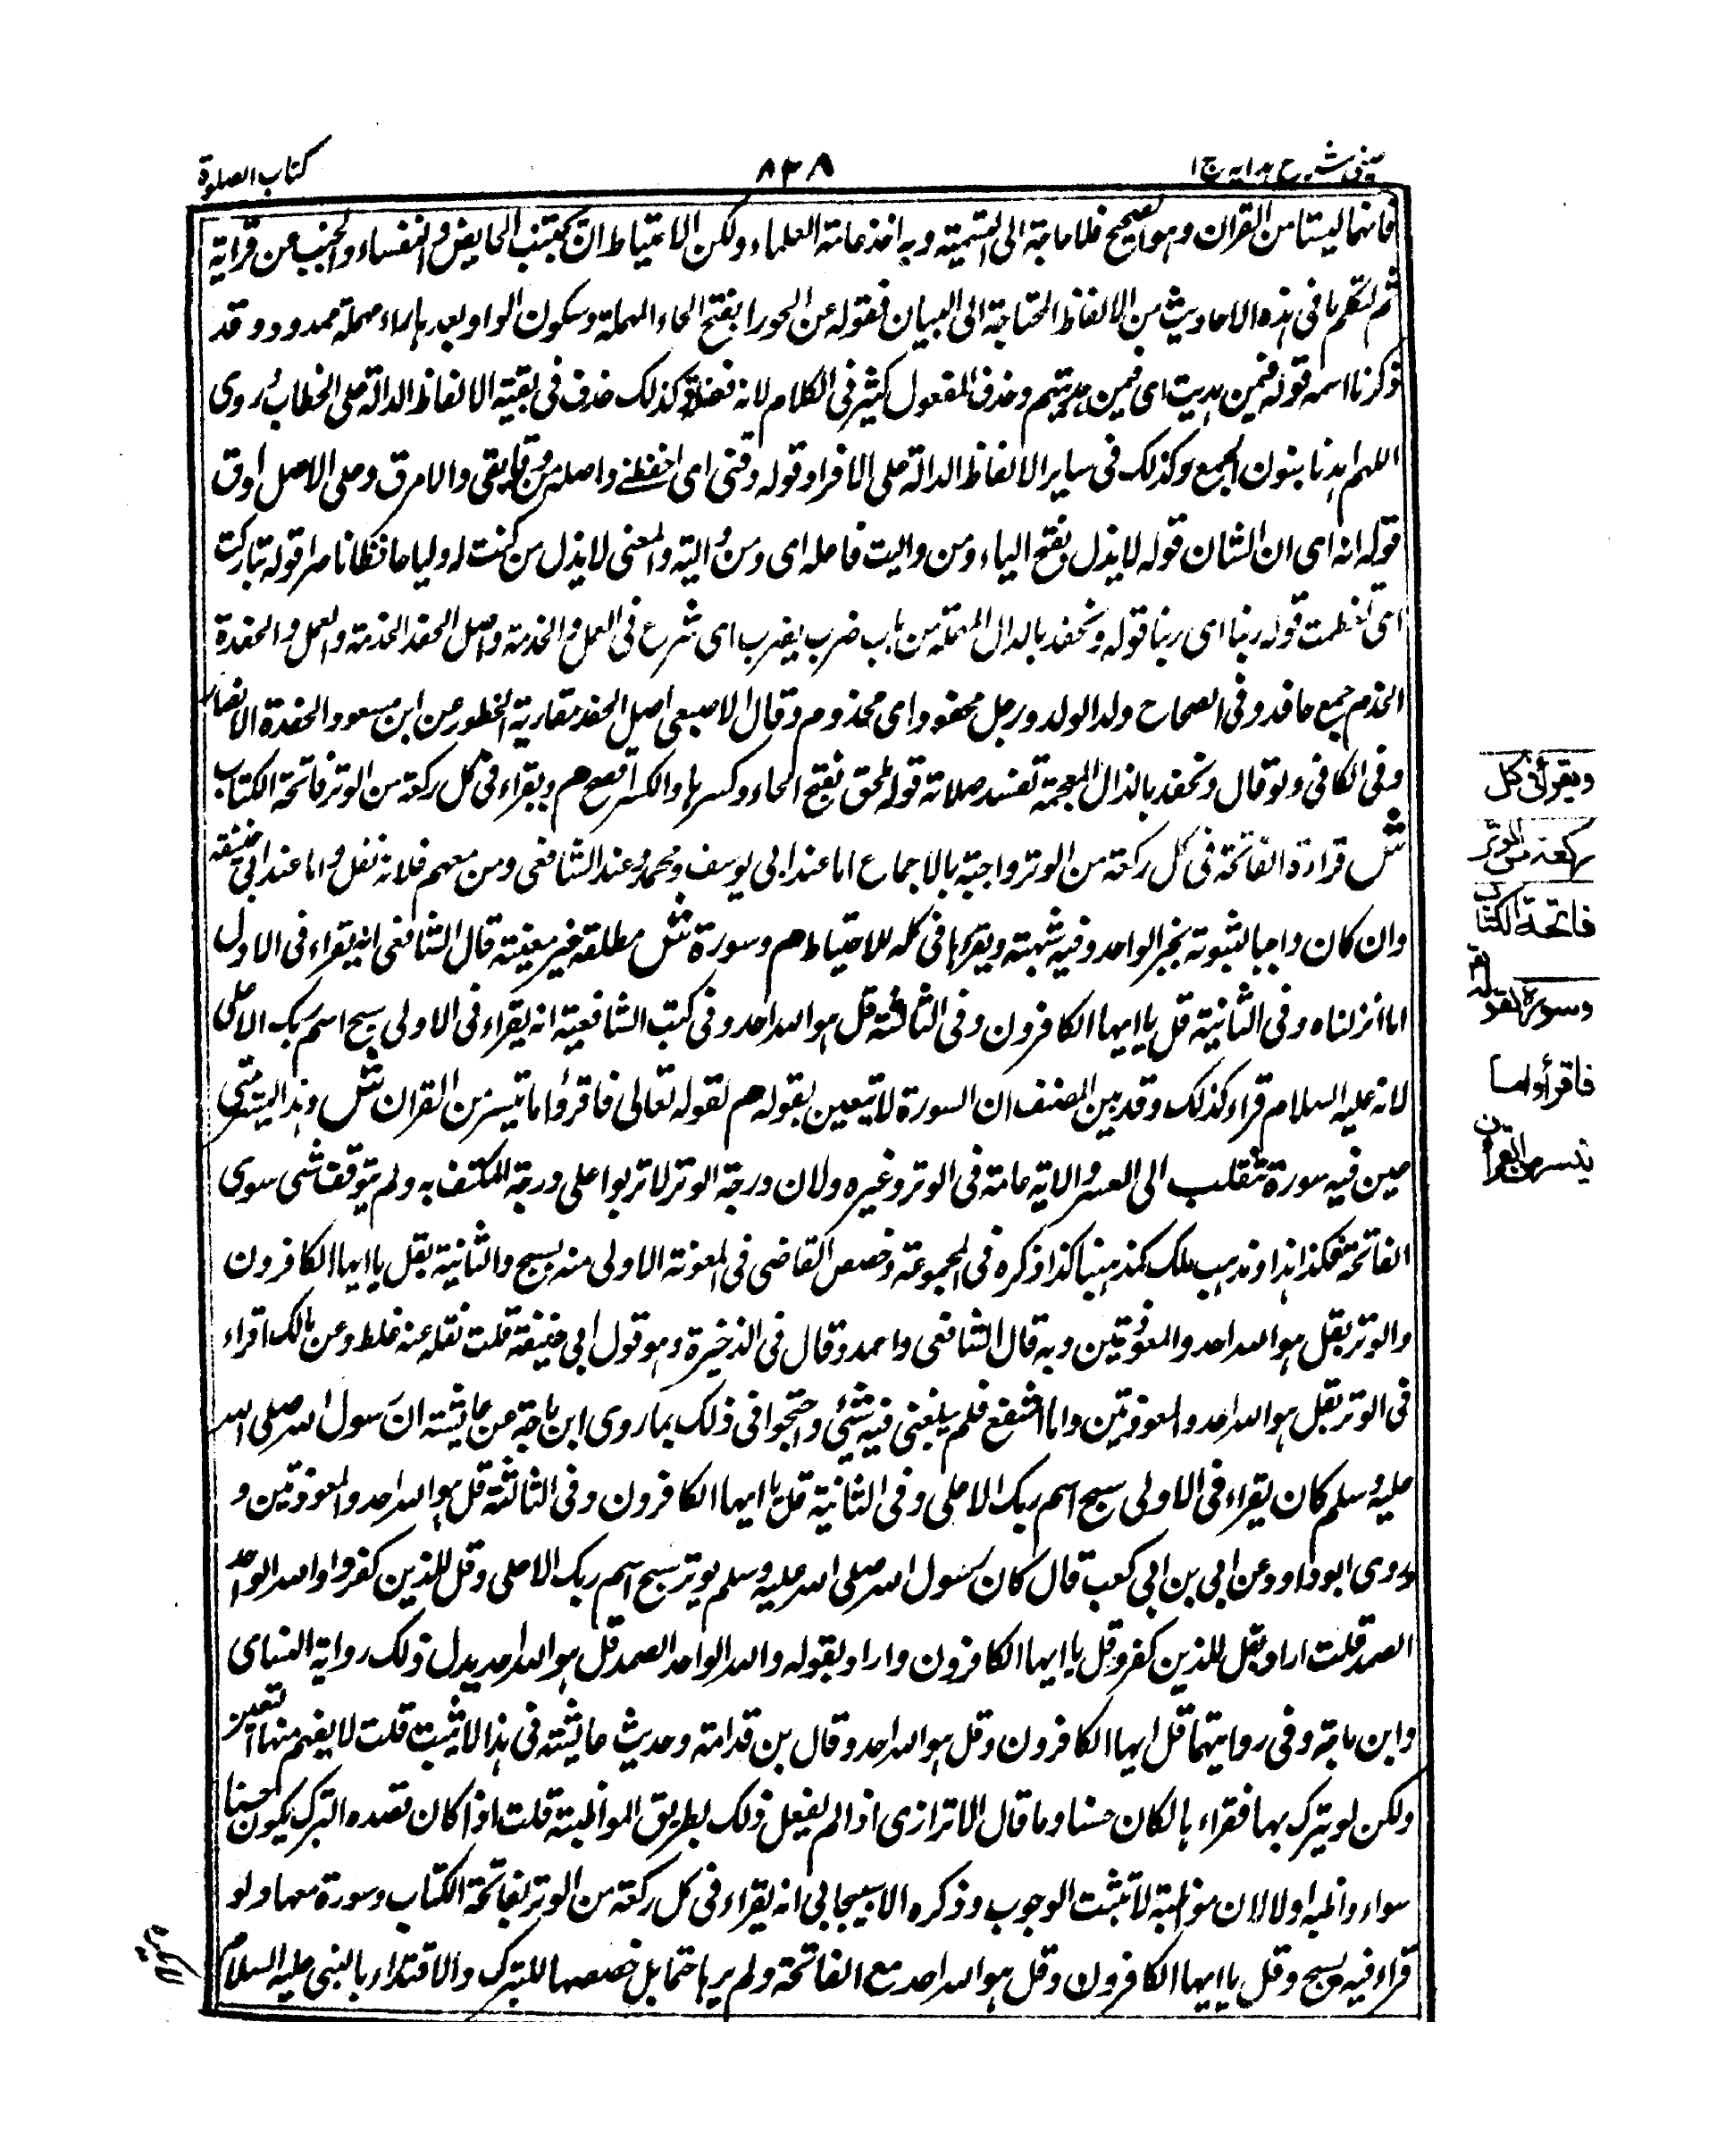 عینی شرح هدایه ج ۱
۸۳۸
کتاب الصلوة
فانهما ليستا من القران وهو الصحيح فلا حاجة الى التسمية وبه اخذ عامة العلماء ولكن الاحتياط ان يجتنب الحايض والنفساء والجنب عن قراءية
ثم نتكلم ما فى هذه الاحاديث من الالفاظ المحتاجة الى البيان فقوله عن الحورا بفتح الحاء المهملة وسكون الواو بعدها راء مهملة ممدودة وقد
ذكرنا اسمه قوله فيمن هديت اى فيمن هديتهم وحذف المفعول كثير فى الكلام لانه فضلة وكذلك حذف فى بقية الالفاظ الدالة على الخطاب روى
اللهم اهدنا بنون الجمع وكذلك فى ساير الالفاظ الدالة على الافراد قوله وقنى اى احفظنى واصله من وقى يقى والامر ق وعلى الاصل اوق
قوله انه اى ان الشان قوله لا يذل بفتح الياء ومن واليت فاعله اى ومن واليته والمعنى لا يذل من كنت له وليا حافظا ناصرا قوله تباركت
اى تعظمت قوله ربنا اى ربنا قوله ونحفد بالدال المهملة من باب ضرب يضرب اى نسرع فى العمل والخدمة واصل الحفد الخدمة والعمل والحفدة
الخدم جمع حافد وفى الصحاح ولد الولد ورجل محفود اى مخدوم وقال الاصمعى اصل الحفد مقاربة الخطور عن ابن مسعود الحفدة الانصار
وفى الكافى ولو قال ونحفذ بالذال المعجمة تفسد صلاته قوله ملحق بفتح الحاء وكسرها والكسر افصح هم ويقراء فى كل ركعة من الوتر فاتحة الكتاب
ش قراءة الفاتحة فى كل ركعة من الوتر واجبة بالاجماع اما عند ابى يوسف ومحمد وعند الشافعى ومن معهم فلانه نفل واما عند ابى حنيفة
وان كان واجبا لثبوته بخبر الواحد وفيه شبهته ويقراها فى كله للاحتياط هم وسورة ش مطلقة غير معينة قال الشافعى انه يقراء فى الاولى
اما انزلناه وفى الثانية قل يا ايها الكافرون وفى الثالثة قل هو الله احد وفى كتب الشافعية انه يقراء فى الاولى سبح اسم ربك الاعلى
لانه عليه السلام قراء كذلك وقد بين المصنف ان السورة لا تتعين بقوله هم لقوله تعالى فاقروا ما تيسر من القران ش وهذا اليسر متى
عين فيه سورة تنقلب الى العسر والاية عامة فى الوتر وغيره ولان درجة الوتر لا تربوا على درجة المكتف به ولم يتوقف شى سوى
الفاتحة فكذا هذا ومذهب مالك كمذهبنا كذا ذكره فى المجموعة وخصص القاضى فى المعونة الاولى منه بسبح والثانية بقل يا ايها الكافرون
والوتر بقل هو الله احد والمعوذتين وبه قال الشافعى واحمد وقال فى الذخيرة وهو قول ابى حنيفة قلت نقله عنه غلط وعن مالك اقراء
فى الوتر بقل هو الله احد والمعوذتين واما الشفع فلم يبلغنى فيه شيئ واحتجوا فى ذلك بما روى ابن ماجة عن عايشة ان رسول الله صلى الله
عليه وسلم كان يقراء فى الاولى سبح اسم ربك الاعلى وفى الثانية قل يا ايها الكافرون وفى الثالثة قل هو الله احد والمعوذتين و
روى ابو داود عن ابى بن ابى كعب قال كان رسول الله صلى الله عليه وسلم يوتر بسبح اسم ربك الاعلى وقل للذين كفروا والله الواحد
الصمد قلت اراد بقل للذين كفرو قل يا ايها الكافرون واراد بقوله والله الواحد الصمد قل هو الله احد يدل ذلك رواية النساى
وابن ماجة وفى روايتهما قل ايها الكافرون وقل هو الله احد وقال بن قدامة وحديث عايشة فى هذا لا يثبت قلت لا يفهم منها التعيين
ولكن لو يترك بها فقراء بها لكان حسنا وما قال الاترازى اذا لم يفعل ذلك بطريق المواظبة قلت اذا كان قصده التبرك يكون حسنا
سواء واظب اولا لان مواظبة لا تثبت الوجوب وذكره الاسبيجابى انه يقراء فى كل ركعة من الوتر بفاتحة الكتاب وسورة معها ولو
قراء فيه بسبح وقل يا ايها الكافرون وقل هو الله احد مع الفاتحة ولم يرها حتما بل خصصها للتبرك والاقتداء بالنبى عليه السلام
ويقرأ فى كل
ركعة من الوتر
فاتحة الكتاب
وسورة لقوله
فاقرأوا ما
تيسر من القرآن